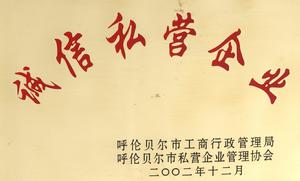 诚信私营企业
呼伦贝尔市工商行政管理局
呼伦贝尔市私营企业管理协会
二〇〇二年十二月